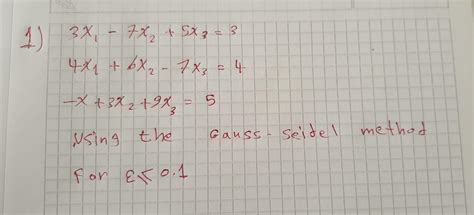 1) 3x₁ - 7x₂ + 5x₃ = 3
4x₁ + 6x₂ - 7x₃ = 4
-x + 3x₂ + 9x₃ = 5
Using the Gauss-seidel method
For ε ≤ 0.1